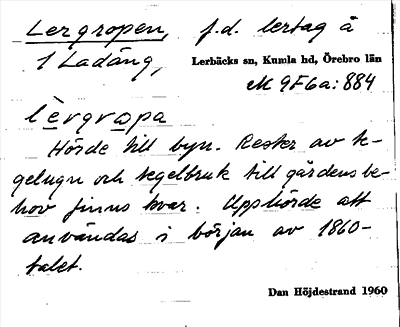 Lergropen, f.d. lertag å
1 Ladäng,
Lerbäcks sn, Kumla hd, Örebro län
M 9F6a:884
lèrgropa
Hörde till byn. Rester av te-
gelugn och tegelbruk till gårdens be-
hov finns kvar. Upphörde att
användas i början av 1860-
talet.
Dan Höjdestrand 1960